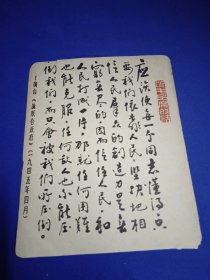 应该使每一个同志懂得，只
要我们依靠人民，坚决地相
信人民群众的创造力是无
穷无尽的，因而信任人民，和
人民打成一片，那就任何困难
也能克服，任何敌人也不能压
倒我们，而只会被我们所压倒。
《论联合政府》（一九四五年四月）